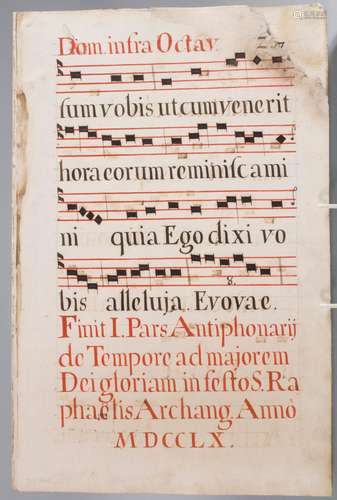 Dom. infra Octav.
sum vobis ut cum venerit
hora eorum reminiscami
ni quia Ego dixi vo
8.
bis alleluja. Evovae.
Finit I. Pars Antiphonarij
de Tempore ad majorem
Dei gloriam in festo S. Ra
phaelis Archang. Anno
MDCCLX.